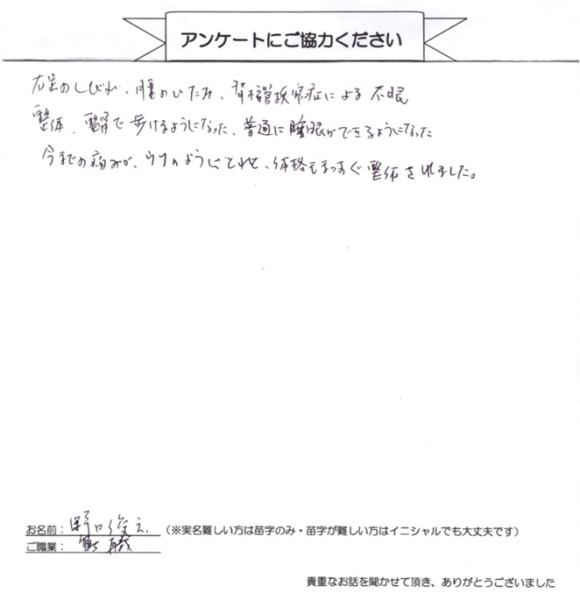 アンケートにご協力ください
右足のしびれ、腰のいたみ、脊柱管狭窄症による不眠
整体、で歩けるようになった、普通に睡眠ができるようになった
今までの痛みが、ウソのようにとれて、体格もまっすぐ整体されました。
お名前：野口 （※実名難しい方は苗字のみ・苗字が難しい方はイニシャルでも大丈夫です）
ご職業：無職
貴重なお話を聞かせて頂き、ありがとうございました